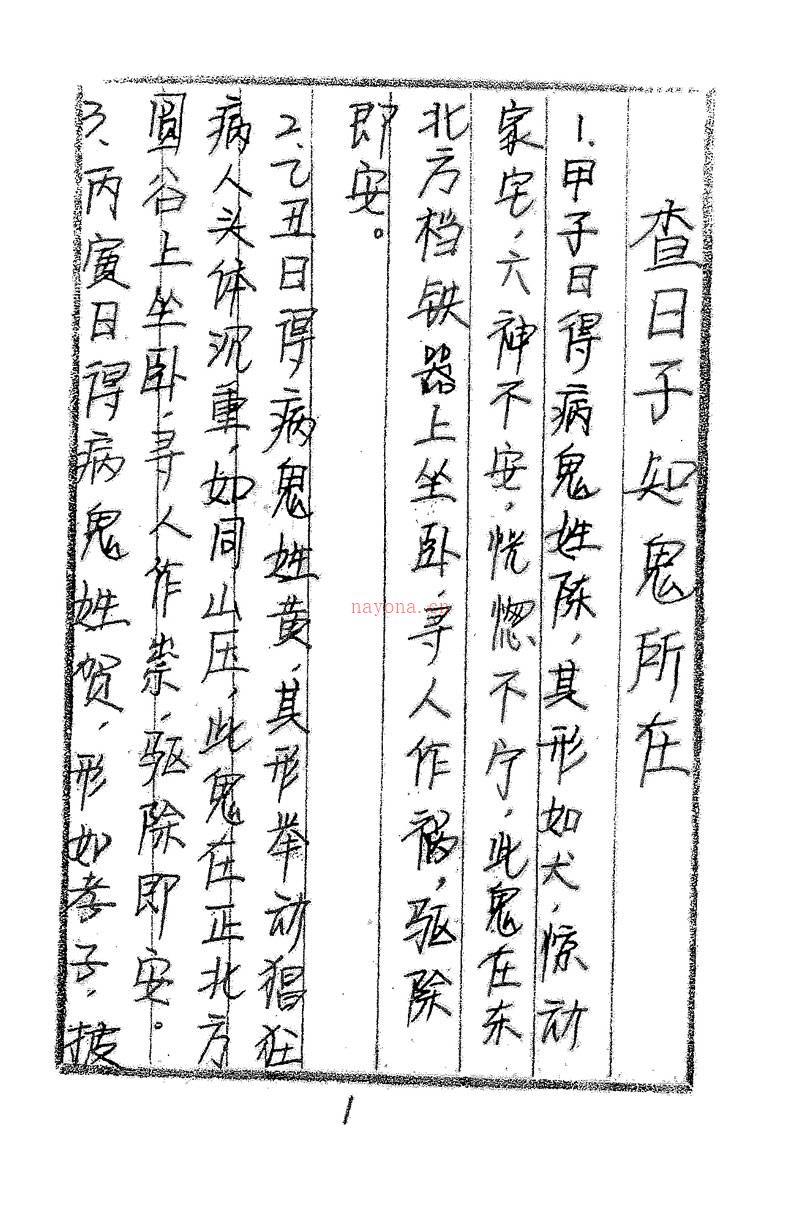 查日子知鬼所在
1.甲子日得病鬼姓陈,其形如犬,惊动
家宅,六神不安,恍惚不宁,此鬼在东
北方档铁器上坐卧,寻人作祸,驱除
即安。
2.乙丑日得病鬼姓黄,其形举动猖狂
病人头体沉重,如同山压,此鬼在正北方
圆谷上坐卧,寻人作祟,驱除即安。
3、丙寅日得病鬼姓贺,形如孝子,披
1
nayona.cn